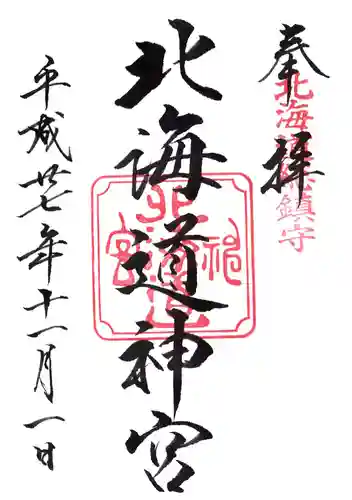 奉拝
北海道総鎮守
北海道神宮
北海道神宮
平成廿七年十一月一日